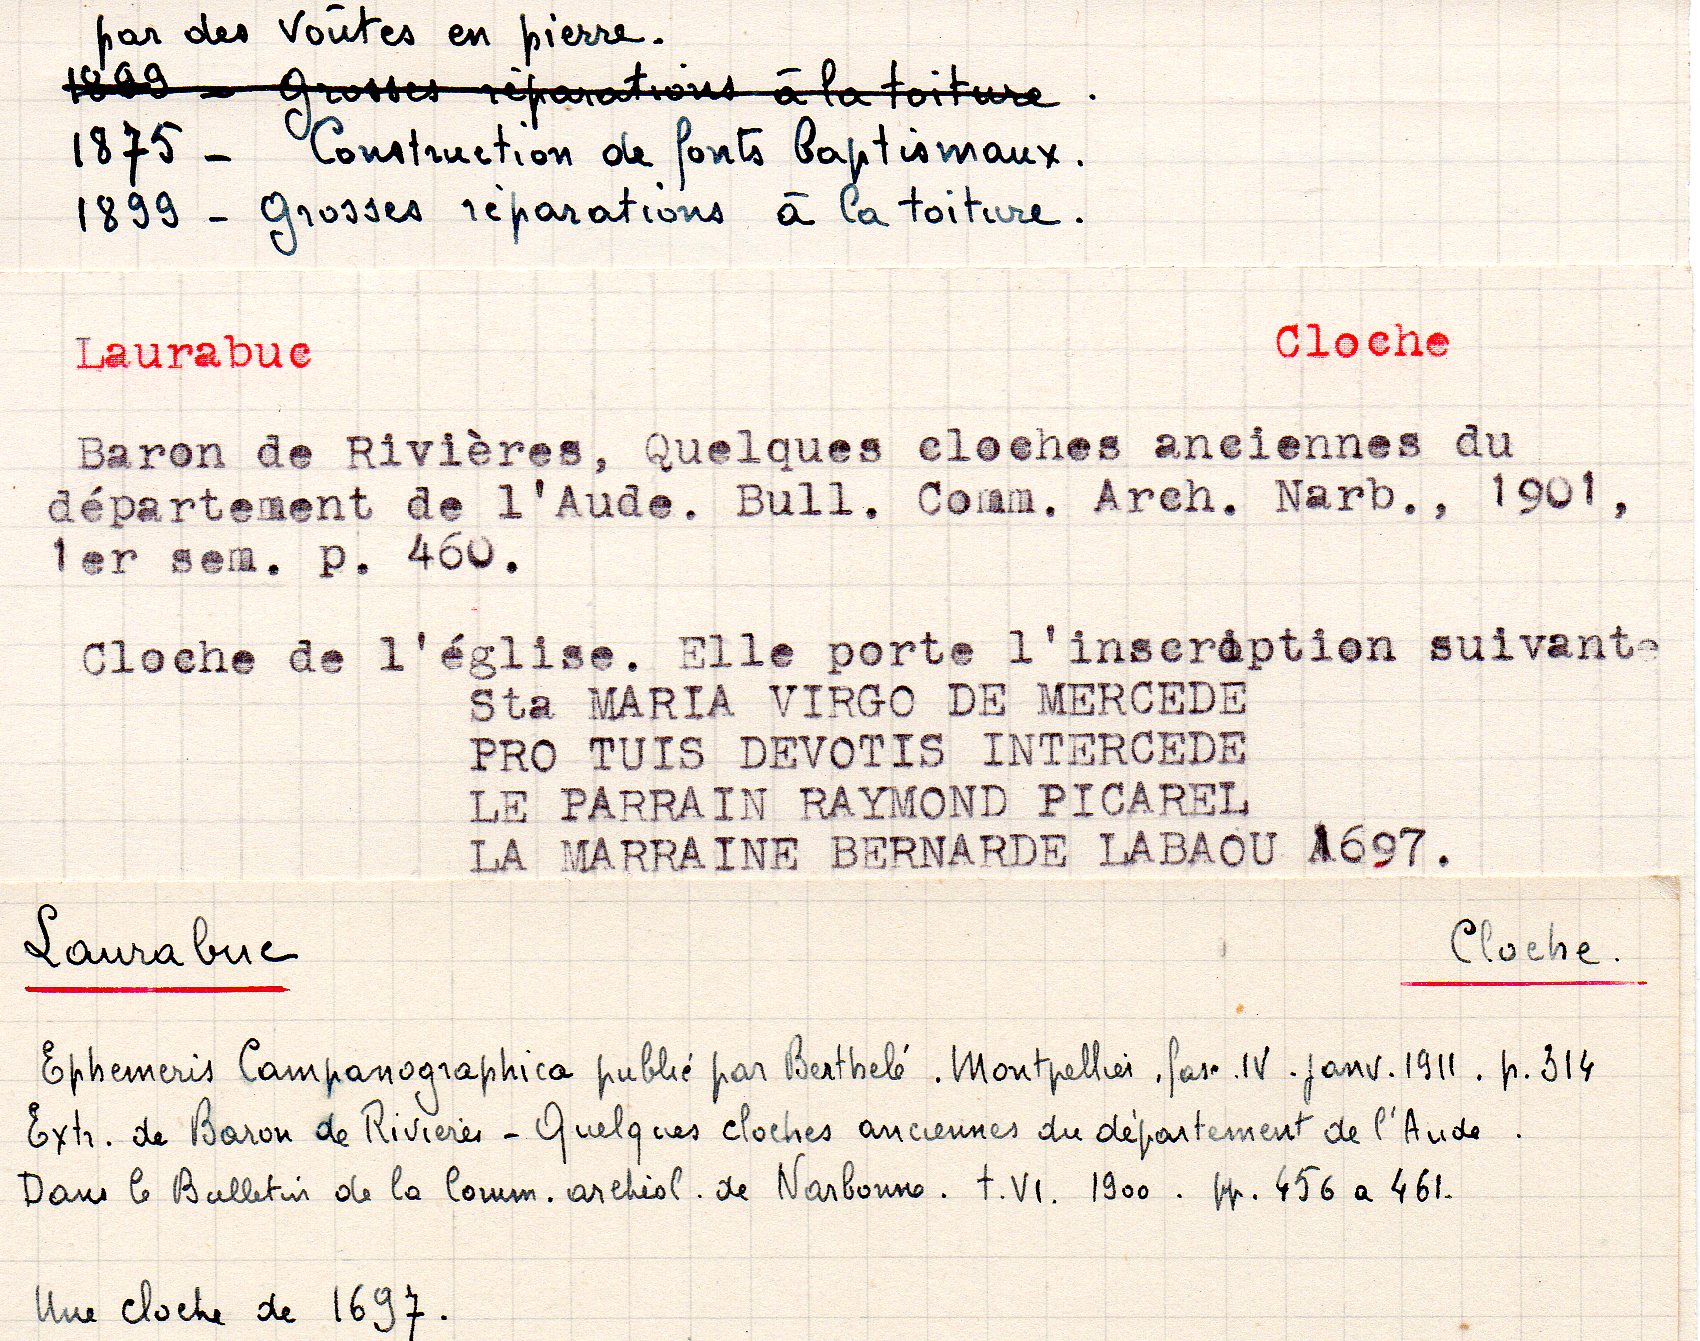 par des voûtes en pierre.
1899 - Grosses réparations à la toiture.
1875 - Construction de fonts baptismaux.
1899 - Grosses réparations à la toiture.
Laurabuc Cloche
Baron de Rivières, Quelques cloches anciennes du
département de l'Aude. Bull. Comm. Arch. Narb., 1901,
1er sem. p. 460.
Cloche de l'église. Elle porte l'inscription suivante
Sta MARIA VIRGO DE MERCEDE
PRO TUIS DEVOTIS INTERCEDE
LE PARRAIN RAYMOND PICAREL
LA MARRAINE BERNARDE LABAOU 1697.
Laurabuc Cloche.
Ephemeris Campanographica publié par Berthelé. Montpellier, fasc. IV. janv. 1911. p. 314
Extr. de Baron de Rivières - Quelques cloches anciennes du département de l'Aude.
Dans le Bulletin de la Comm. archéol. de Narbonne. t. VI. 1900. pp. 456 a 461.
Une cloche de 1697.